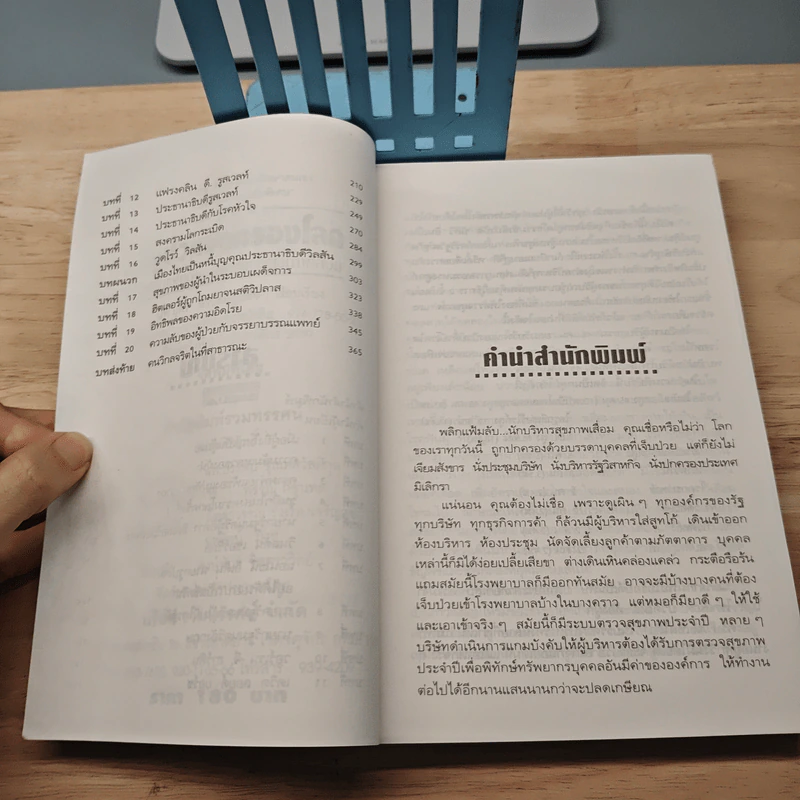 บทที่ 12 แฟรงคลิน ดี. รูสเวลท์ 210
บทที่ 13 ประธานาธิบดีรูสเวลท์ 229
บทที่ 14 ประธานาธิบดีกับโรคหัวใจ 249
บทที่ 15 สงครามโลกระเบิด 270
บทที่ 16 วูดโรว์ วิลสัน 284
บทผนวก เมืองไทยเป็นหนี้บุญคุณประธานาธิบดีวิลสัน 299
บทที่ 17 สุขภาพของผู้นำในระบอบเผด็จการ 303
บทที่ 18 ฮิตเลอร์ผู้ถูกโณมยาจนสติวิปลาส 323
บทที่ 19 อิทธิพลของความอิดโรย 338
บทที่ 20 ความลับของผู้ป่วยกับจรรยาบรรณแพทย์ 345
บทส่งท้าย คนวิกลจริตในที่สาธารณะ 365
คำนำสำนักพิมพ์
พลิกแฟ้มลับ...นักบริหารสุขภาพเสื่อม คุณเชื่อหรือไม่ว่า โลก
ของเราทุกวันนี้ ถูกปกครองด้วยบรรดาบุคคลที่เจ็บป่วย แต่ก็ยังไม่
เจียมสังขาร นั่งประชุมบริษัท นั่งบริหารรัฐวิสาหกิจ นั่งปกครองประเทศ
มิเลิกรา
แน่นอน คุณต้องไม่เชื่อ เพราะดูเผิน ๆ ทุกองค์กรของรัฐ
ทุกบริษัท ทุกธุรกิจการค้า ก็ล้วนมีผู้บริหารใส่สูทโก้ เดินเข้าออก
ห้องบริหาร ห้องประชุม นัดจัดเลี้ยงลูกค้าตามภัตตาคาร บุคคล
เหล่านี้ก็มิได้ง่อยเปลี้ยเสียขา ต่างเดินเหินคล่องแคล่ว กระตือรือร้น
แถมสมัยนี้โรงพยาบาลก็มีออกทันสมัย อาจจะมีบ้างบางคนที่ต้อง
เจ็บป่วยเข้าโรงพยาบาลบ้างในบางคราว แต่หมอก็มียาดี ๆ ให้ใช้
และเอาเข้าจริง ๆ สมัยนี้ก็มีระบบตรวจสุขภาพประจำปี หลาย ๆ
บริษัทดำเนินการแกมบังคับให้ผู้บริหารต้องได้รับการตรวจสุขภาพ
ประจำปีเพื่อพิทักษ์ทรัพยากรบุคคลอันมีค่าขององค์การ ให้ทำงาน
ต่อไปได้อีกนานแสนนานกว่าจะปลดเกษียณ